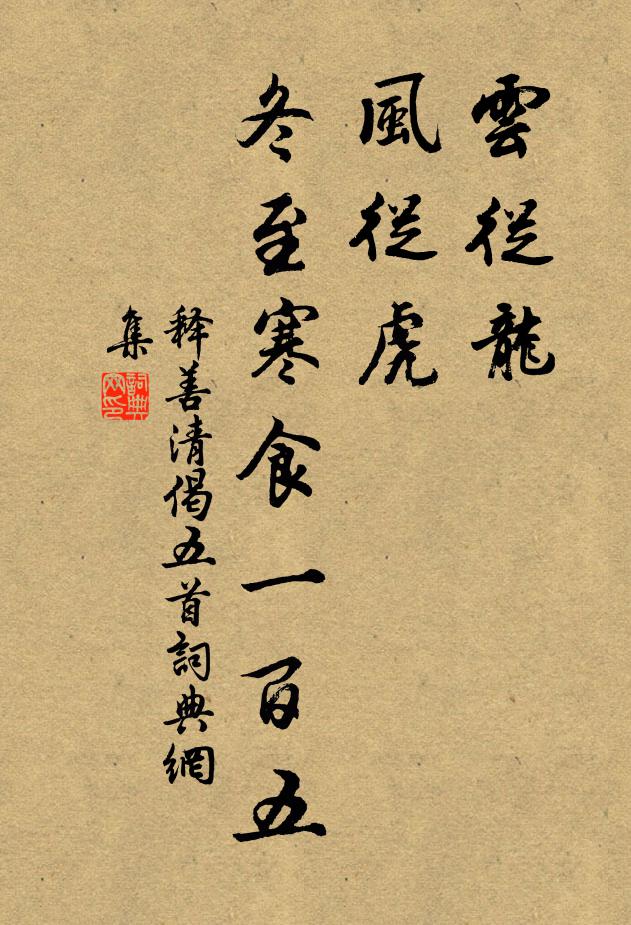 雲從龍
風從虎
冬至寒食一百五
释善清偈五首詞典網
集
詞典
网印